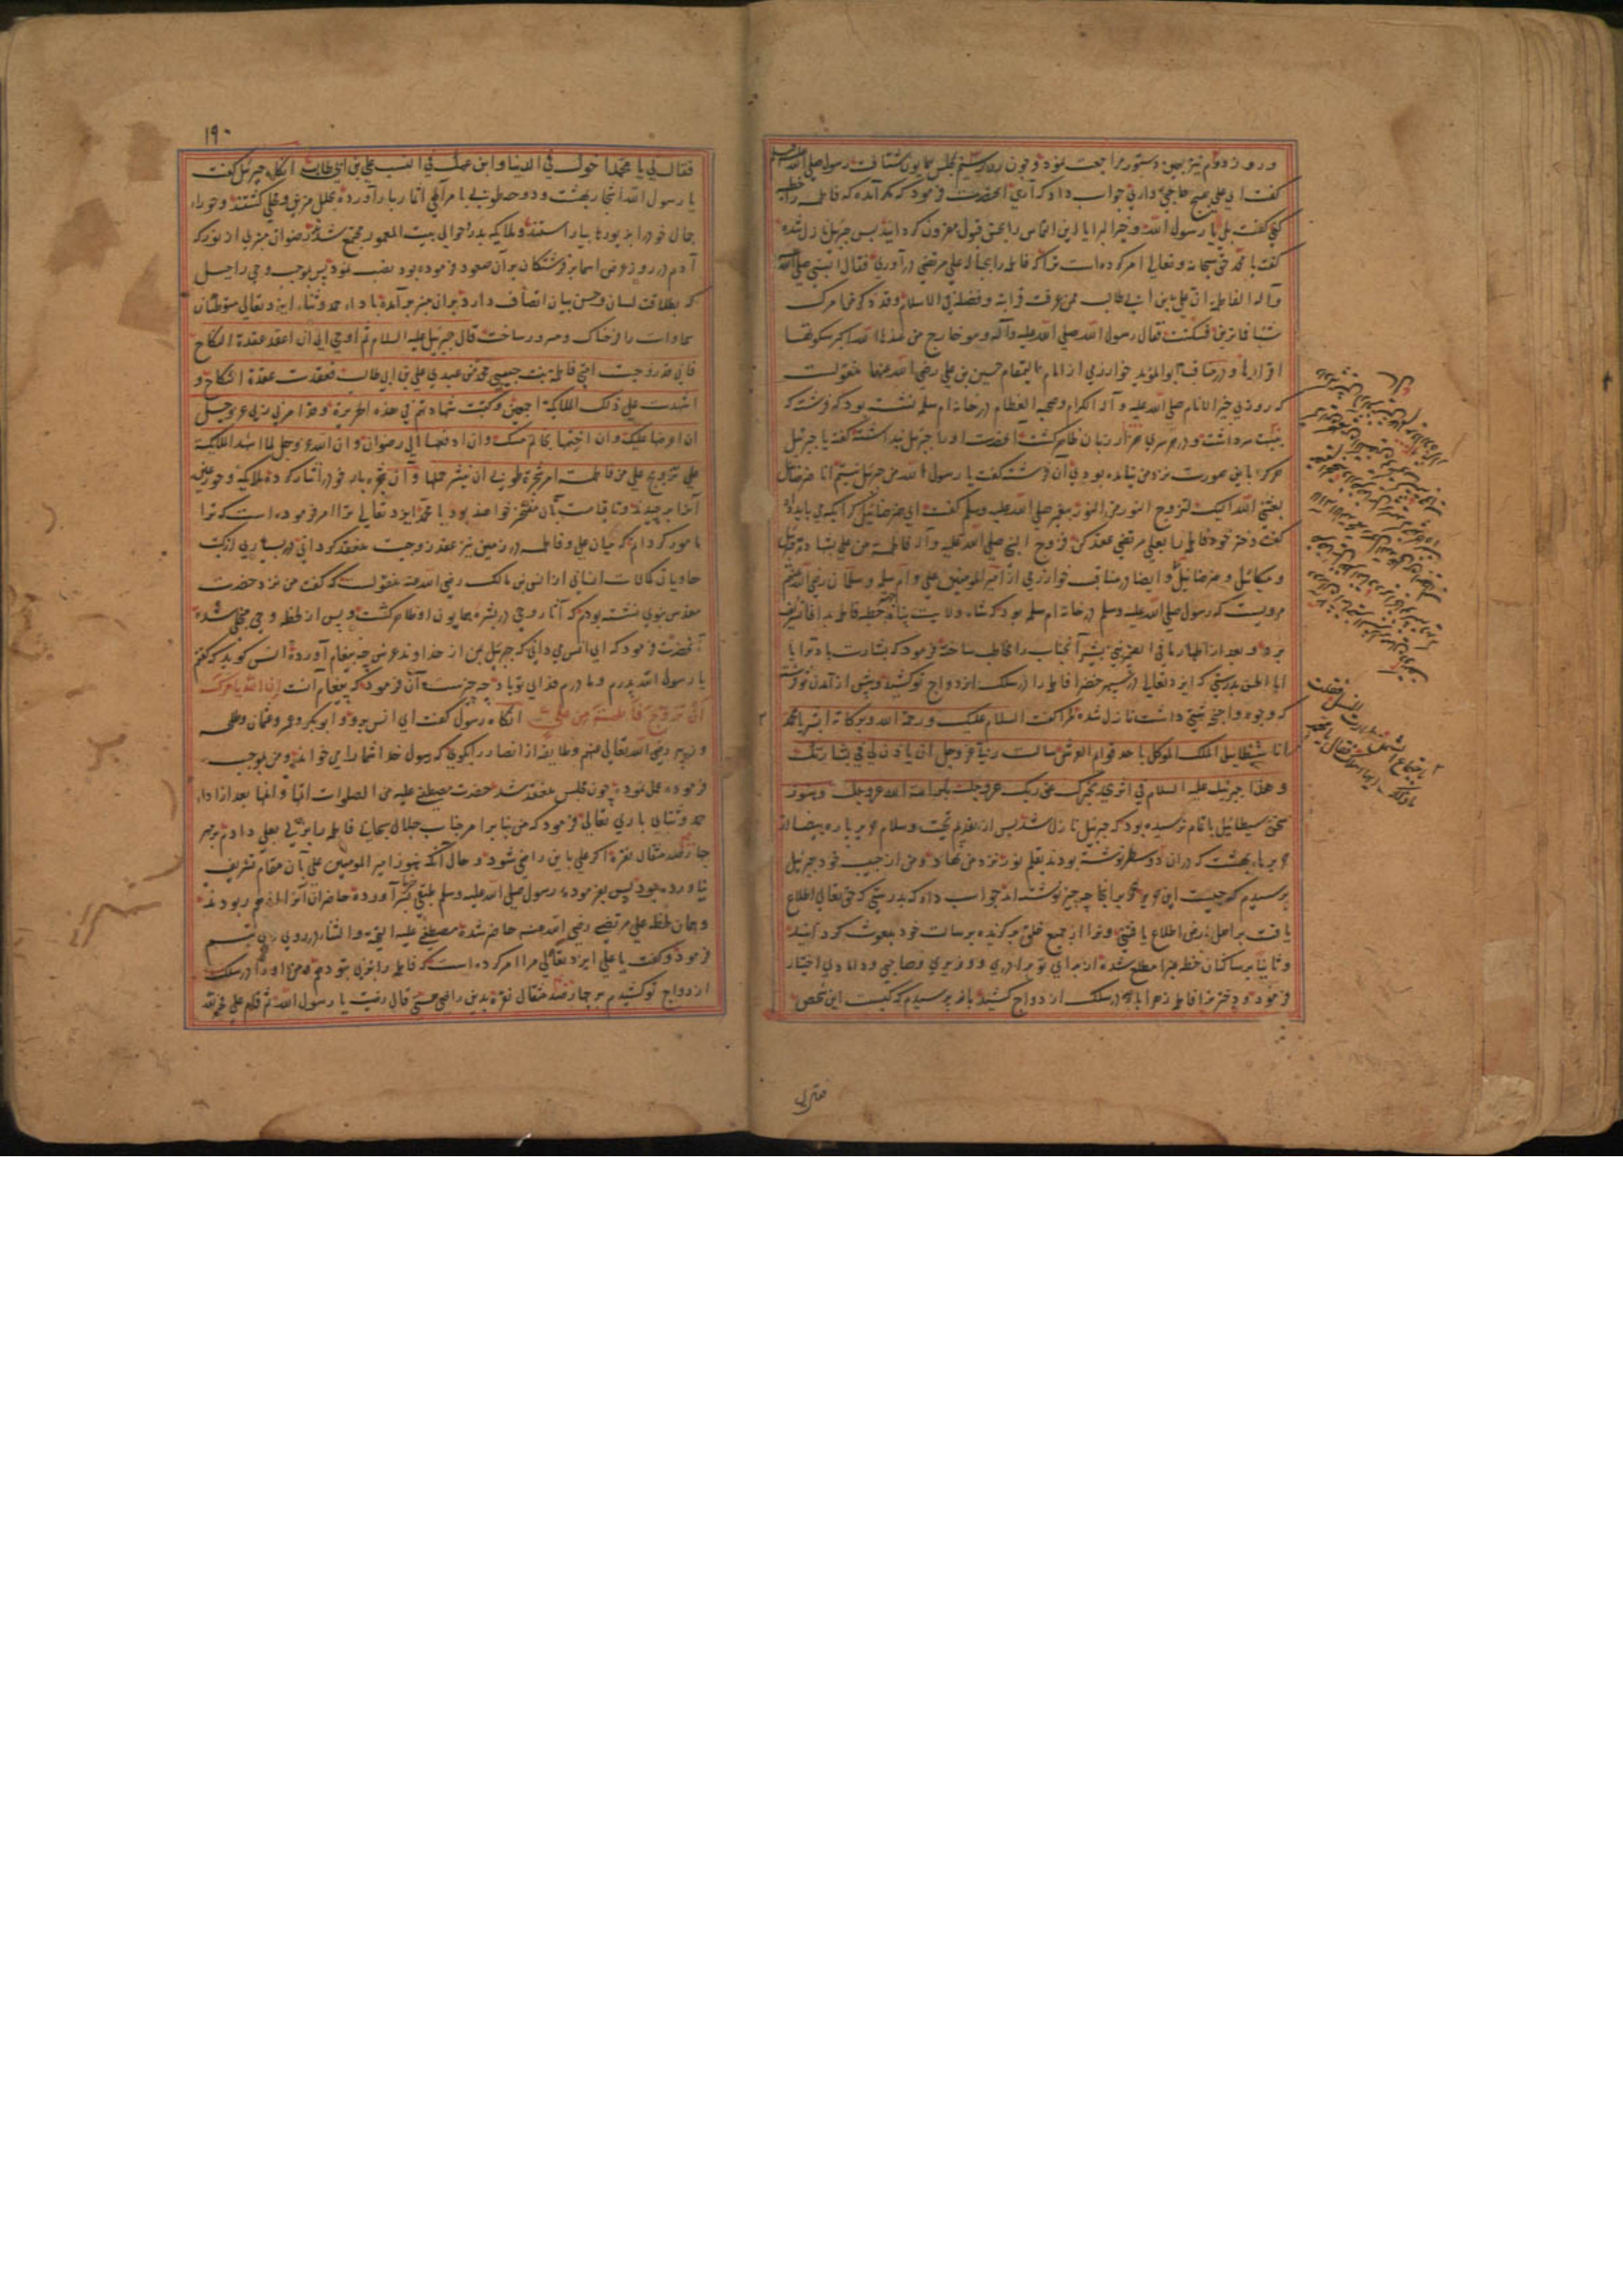 و روز دوم نیز بهمین دستور مراجعت نمود و چون روز سیم بمجلس همایون شتافت رسول صلی الله علیه
گفت ای علی هیچ حاجتی داری جواب داد که آری آنحضرت فرمود که مگر آمده که فاطمه را خطبه
کنی گفت بلی یا رسول الله و خیر البرایا این التماس را بحسن قبول مقرون کردانید پس جبرئیل نازل شده
گفت یا محمد حق سبحانه و تعالی امر کرده است ترا که فاطمه را بحباله علی مرتضی درآوری فقال النبی صلی الله علیه
و آله لفاطمة ان علی بن ابی طالب ممن عرفت قرابته و فضله فی الاسلام و قد ذکر من امرک
شیئا فما ترین فسکتت فقال رسول الله صلی الله علیه و آله و هو خارج من عندها الله اکبر سکوتها
اقرارها و در مناقب ابو المؤید خوارزمی از امام حسین بن علی رضی الله عنهما منقولست
که روزی خیر الانام صلی الله علیه و آله الکرام و صحبه العظام در خانه ام سلمه نشسته بود که فرشته که
بیست سر داشت و در هر سری هزار زبان ظاهر گشت آنحضرت او را جبرئیل پنداشته گفت یا جبرئیل
هرگز باین صورت نزد من نیامده بودی آن فرشته گفت یا رسول الله من جبرئیل نیستم انا صرصائیل
بعثنی الله الیک لتزوج النور من النور پیغمبر صلی الله علیه و سلم گفت ای صرصائیل کرا بکه می باید داد
گفت دختر خود فاطمه را بعلی مرتضی عقد کن فزوج النبی صلی الله علیه و آله فاطمة من علی بشهادة جبرئیل
و میکائیل و صرصائیل و ایضا در مناقب خوارزمی از امیر المؤمنین علی و ام سلمه و سلمان رضی الله عنهم
مرویست که رسول صلی الله علیه و سلم در خانه ام سلمه بود که شاه ولایت پناه بخطبه فاطمه بدانجا تشریف
برد و بعد از اظهار ما فی الضمیر نبی بشیر آنجناب را مخاطب ساخته فرمود که بشارت باد ترا یا
ابا الحسن بدرستی که ایزد تعالی در سپهر خضرا فاطمه را در سلک ازدواج تو کشید و پیش از آمدن تو فرشته
که وجوه و اجنحه شتی داشت نازل شده مرا گفت السلام علیک و رحمة الله و برکاته ابشر یا محمد
انا سیطائیل الملک الموکل باحد قوائم العرش سالت ربی عز و جل ان یاذن لی فی بشارتک
و هذا جبرئیل علیه السلام فی اثری یخبرک عن ربک عز و جل بکرامة الله عز و جل و هنوز
سخن سیطائیل باتمام نرسیده بود که جبرئیل نازل شد پس از تقدیم تحیت و سلام حریر پاره بیضا از
حریرهاء بهشت که در آن دو سطر نوشته بودند بقلم نور نزد من نهاد و من از حبیب خود جبرئیل
پرسیدم که چیست این حریر و بر اینجا چه چیز نوشته اند جواب داد که بدرستی که حق تعالی اطلاع
یافت بر اهل ارض اطلاع یافتنی و ترا از جمیع خلق برگزیده برسالت خود مبعوث کردانید
و ثانیا بر ساکنان خطه غبرا مطلع شده از برای تو برادری و وزیری و صاحبی و دامادی اختیار
فرمود و دختر ترا فاطمه زهرا با او در سلک ازدواج کشید باز پرسیدم که کیست این شخص
فقال لی
۱۹۰
فقال لی یا محمد اخوک فی الدنیا و ابن عمک فی النسب علی بن ابی طالب آنگاه جبرئیل گفت
یا رسول الله اشجار بهشت و دوحه طوبی بامر الهی اثمار ببار آورده بحلل مزین و محلی گشتند و حورا
جمال خود را بزیورها بیاراستند و ملائکه بدر حوالی بیت المعمور مجتمع شد رضوان منبری از نور که
آدم در روز عرض اسما بر فرشتگان بر آن صعود فرموده بود نصب نمود پس بموجب وحی راحیل
که بطلاقت لسان و حسن بیان اتصاف دارد بر آن منبر برآمده باداء حمد و ثناء ایزد تعالی متوطنان
سماوات را فرحناک و مسرور ساخت قال جبرئیل علیه السلام ثم اوحی الی ان اعقد عقدة النکاح
فانی قد زوجت امتی فاطمة بنت حبیبی محمد من عبدی علی بن ابی طالب فعقدت عقدة النکاح و
اشهدت علی ذلک الملائکة اجمعین و کتبت شهادتهم فی هذه الحریرة و قد امرنی ربی عز و جل
ان اعرضها علیک و ان اختمها بخاتم مسک و ان ادفعها الی رضوان و ان الله عز و جل لما اشهد الملائکة
علی تزویج علی من فاطمة امر شجرة طوبی ان ینثر حملها و آن شجره بار خود را نثار کرده ملائکه و حور عین
آنرا برچیدند و تا قیامت بآن مفتخر خواهند بود یا محمد ایزد تعالی مرا امر فرموده است که ترا
مامور کردانم که میان علی و فاطمه در زمین نیز عقد زوجیت منعقد کردانی و در بسیاری از کتب
حاویان کمالات انسانی از انس بن مالک رضی الله عنه منقولست که گفت من نزد حضرت
مقدس نبوی نشسته بودم که آثار وحی در بشره همایون او ظاهر گشت و پس از لحظه وحی منجلی شده
آنحضرت فرمود که ای انس می دانی که جبرئیل بمن از خداوند عرش چه پیغام آورده انس گوید که گفتم
یا رسول الله پدرم و مادرم فدای تو باد چه چیزست آن فرمود که پیغام آنست ان الله یامرک
ان تزوج فاطمة من علی آنگاه رسول گفت ای انس برو و ابو بکر و عمر و عثمان و علی
و زبیر رضی الله تعالی عنهم و طایفه از انصار را بگوی که رسول خدا شما را می خواند و من بموجب
فرموده عمل نمودم چون مجلس منعقد شد حضرت مصطفی علیه من الصلوات اتمها و انماها بعد از اداء
حمد و ثنای باری تعالی فرمود که من بنابر امر جناب جلال سبحانی فاطمه را بزنی بعلی دادم بر مهر
چهارصد مثقال نقره اگر علی باین راضی شود و حال آنکه هنوز امیر المؤمنین علی بآن مقام تشریف
نیاورده بود پس بفرموده رسول صلی الله علیه و سلم طبقی بسر آورده حاضران آنرا از هم ربودند
و همان لحظه علی مرتضی رضی الله عنه حاضر شده مصطفی علیه التحیة و الثنا در روی وی تبسم
فرمود و گفت یا علی ایزد تعالی مرا امر کرده است که فاطمه را بزنی بتو دهم و من او را در سلک
ازدواج تو کشیدم بر چهارصد مثقال نقره بدین راضی هستی قال رضیت یا رسول الله ثم قام علی فخر لله